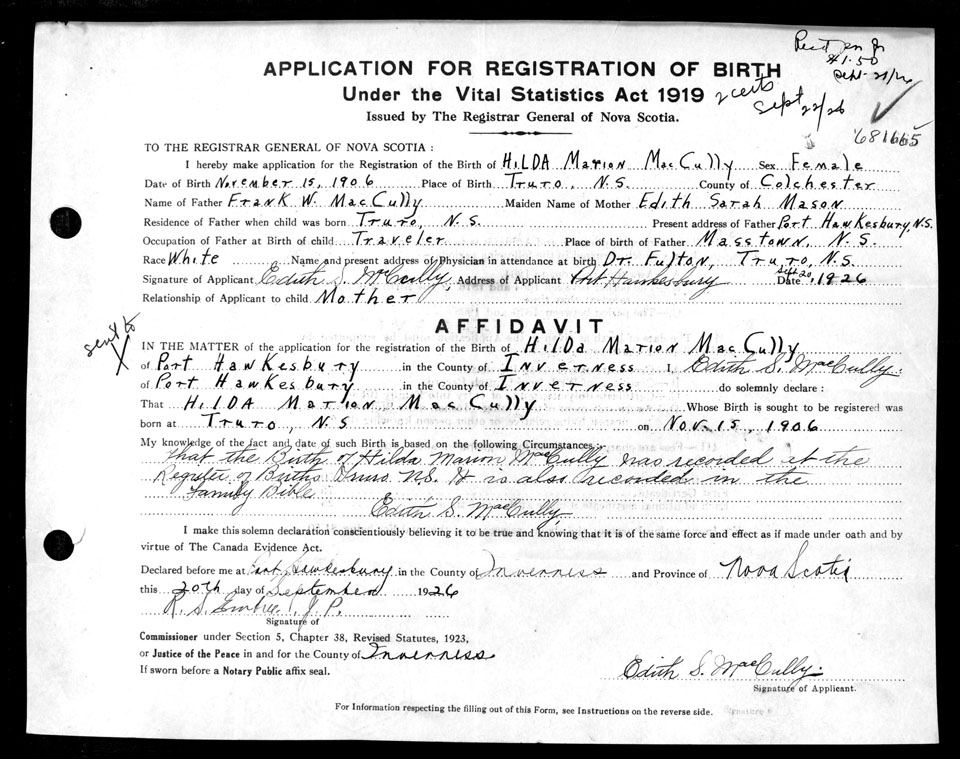 Rec'd
$1.50
Sept. 21/26
APPLICATION FOR REGISTRATION OF BIRTH
Under the Vital Statistics Act 1919
2 certs
Sept 22/26
Issued by The Registrar General of Nova Scotia.
681665
TO THE REGISTRAR GENERAL OF NOVA SCOTIA :
I hereby make application for the Registration of the Birth of HILDA Marion MacCully Sex Female
Date of Birth November 15, 1906 Place of Birth Truro, N.S. County of Colchester
Name of Father Frank W. MacCully Maiden Name of Mother Edith Sarah Mason
Residence of Father when child was born Truro, N.S. Present address of Father Port Hawkesbury, N.S.
Occupation of Father at Birth of child Traveler Place of birth of Father Masstown, N.S.
Race White Name and present address of Physician in attendance at birth Dr. Fulton, Truro, N.S.
Signature of Applicant Edith S. McCully, Address of Applicant Port Hawkesbury Date Sept 20, 1926
Relationship of Applicant to child Mother
sent to X
AFFIDAVIT
IN THE MATTER of the application for the registration of the Birth of Hilda Marion MacCully
of Port Hawkesbury in the County of Inverness I, Edith S. MacCully.
of Port Hawkesbury in the County of Inverness do solemnly declare :
That HILDA Marion MacCully Whose Birth is sought to be registered was
born at Truro, N.S on Nov. 15, 1906
My knowledge of the fact and date of such Birth is based on the following Circumstances :-
that the Birth of Hilda Marion MacCully was recorded at the
Register of Births Truro N.S. It is also recorded in the
Family Bible
Edith S. MacCully,
I make this solemn declaration conscientiously believing it to be true and knowing that it is of the same force and effect as if made under oath and by
virtue of The Canada Evidence Act.
Declared before me at Port Hawkesbury in the County of Inverness and Province of Nova Scotia
this 20th day of September 1926
R. S. Embree, J. P.
Signature of
Commissioner under Section 5, Chapter 38, Revised Statutes, 1923,
or Justice of the Peace in and for the County of Inverness
If sworn before a Notary Public affix seal.
Edith S. MacCully.
Signature of Applicant.
For Information respecting the filling out of this Form, see Instructions on the reverse side.